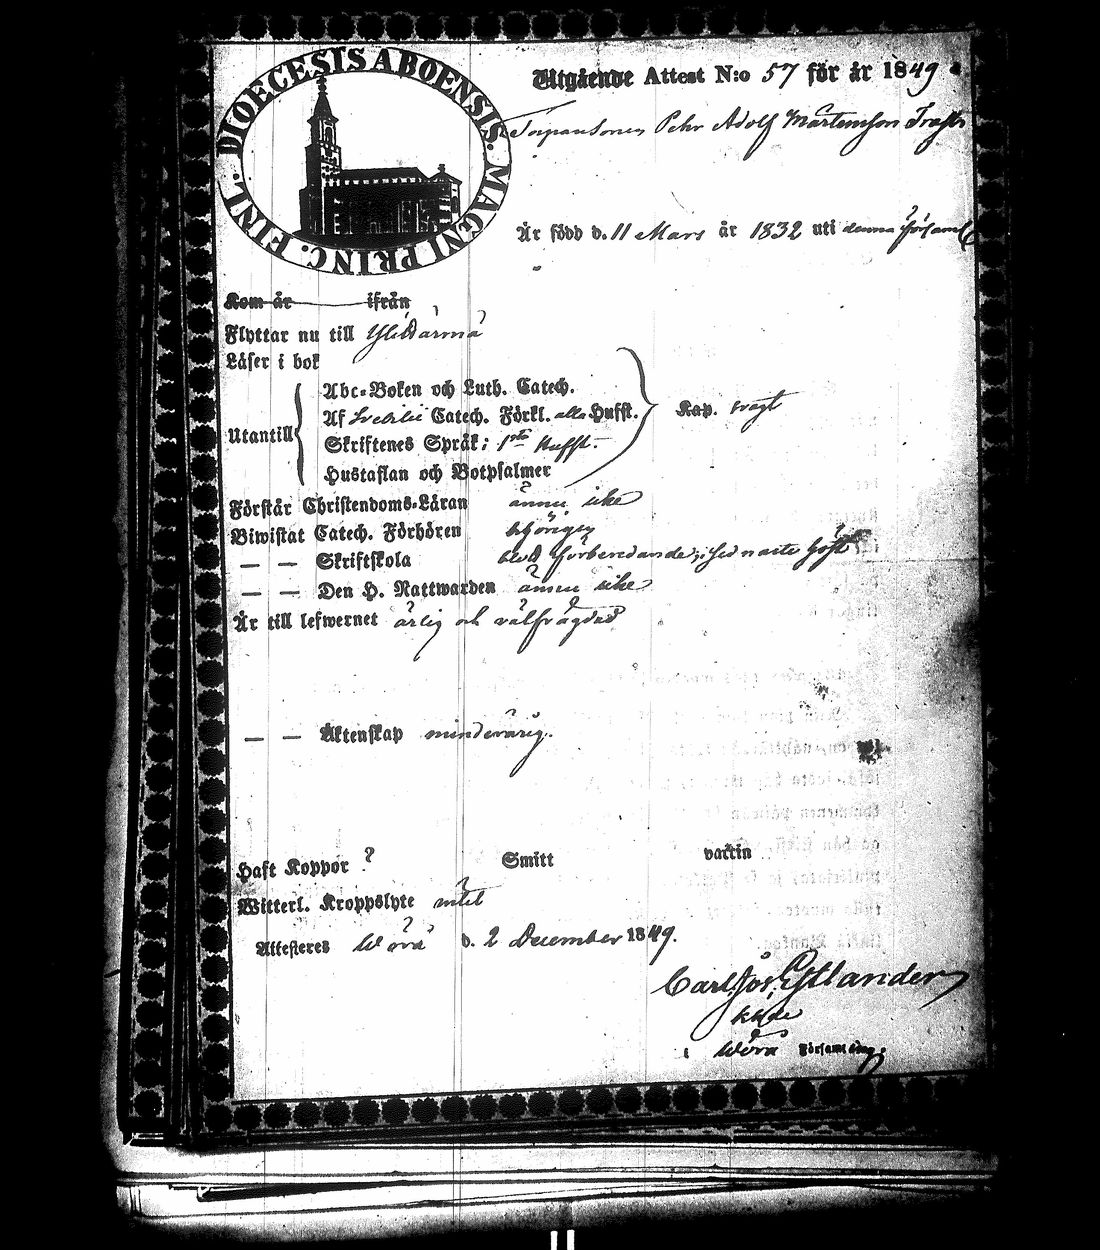 DIOECESIS ABOENSIS. MAGNI PRINC. FINL.
Utgående Attest N:o 57 för år 1849.
Torparesonen Pehr Adolf Mårtensson
Är född d. 11 Mars år 1832 uti denna Församl
Kom år ifrån
Flyttar nu till Ylihärmä
Läser i bok
Utantill
Abc-Boken och Luth. Catech.
Af Svebilii Catech. Förkl. alla Hufst.
Skriftenes Språk; 1sta Hufst.
Hustaflan och Botpsalmer
Kap. svagt
Förstår Christendoms-Läran ännu icke
Biwistat Catech. Förhören behörigen
— — Skriftskola blott förberedande, sednaste höst
— — Den H. Nattwarden ännu icke
Är till lefwernet ärlig och välfrägdad
— — Äktenskap minderårig.
Haft Koppor ? Smitt vaccin
Witterl. Kroppslyte intet
Attesteres Wörå d. 2 December 1849.
Carl Jos. Estlander
Khde
i Wörå Församling.